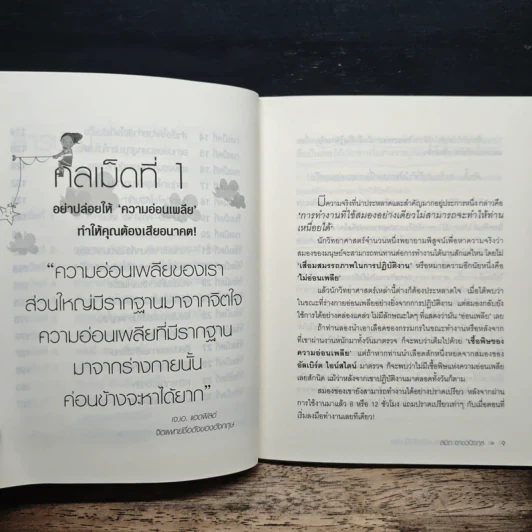 กลเม็ดที่ 1
อย่าปล่อยให้ ‘ความอ่อนเพลีย’
ทำให้คุณต้องเสียอนาคต!
“ความอ่อนเพลียของเรา
ส่วนใหญ่มีรากฐานมาจากจิตใจ
ความอ่อนเพลียที่มีรากฐาน
มาจากร่างกายนั้น
ค่อนข้างจะหาได้ยาก”
เจ.เอ. แฮดฟิลด์
จิตแพทย์ชื่อดังของอังกฤษ
มีความจริงที่น่าประหลาดและสำคัญมากอยู่ประการหนึ่ง กล่าวคือ
‘การทำงานที่ใช้สมองอย่างเดียวไม่สามารถจะทำให้ท่าน
เหนื่อยได้’
นักวิทยาศาสตร์จำนวนหนึ่งพยายามพิสูจน์เพื่อหาความจริงว่า
สมองของมนุษย์จะสามารถทนทานต่อการทำงานได้นานสักแค่ไหน โดยไม่
‘เสื่อมสมรรถภาพในการปฏิบัติงาน’ หรือหมายความอีกนัยหนึ่งคือ
‘ไม่อ่อนเพลีย’
แล้วนักวิทยาศาสตร์เหล่านี้ต่างก็ต้องประหลาดใจ เมื่อได้พบว่า
ในขณะที่ร่างกายอ่อนเพลียอย่างยิ่งจากการปฏิบัติงาน แต่สมองกลับยัง
ใช้การได้อย่างคล่องแคล่ว ไม่มีลักษณะใดๆ ที่แสดงว่ามัน ‘อ่อนเพลีย’ เลย
ถ้าท่านลองนำเอาเลือดของกรรมกรในขณะทำงานหรือหลังจาก
ที่เขาผ่านงานหนักมาทั้งวันมาตรวจ ก็จะพบว่าเต็มไปด้วย ‘เชื้อพิษของ
ความอ่อนเพลีย’ แต่ถ้าหากท่านนำเลือดสักหนึ่งหยดจากสมองของ
อัลเบิร์ต ไอน์สไตน์ มาตรวจ ก็จะพบว่าไม่มีเชื้อพิษแห่งความอ่อนเพลีย
เลยสักนิด แม้ว่าหลังจากเขาปฏิบัติงานมาตลอดทั้งวันก็ตาม
สมองของเรายังสามารถทำงานได้อย่างปราดเปรียว หลังจากผ่าน
การใช้งานมาแล้ว 8 หรือ 12 ชั่วโมง แถมปราดเปรียวเท่าๆ กับเมื่อตอนที่
เริ่มลงมือทำงานเลยทีเดียว!